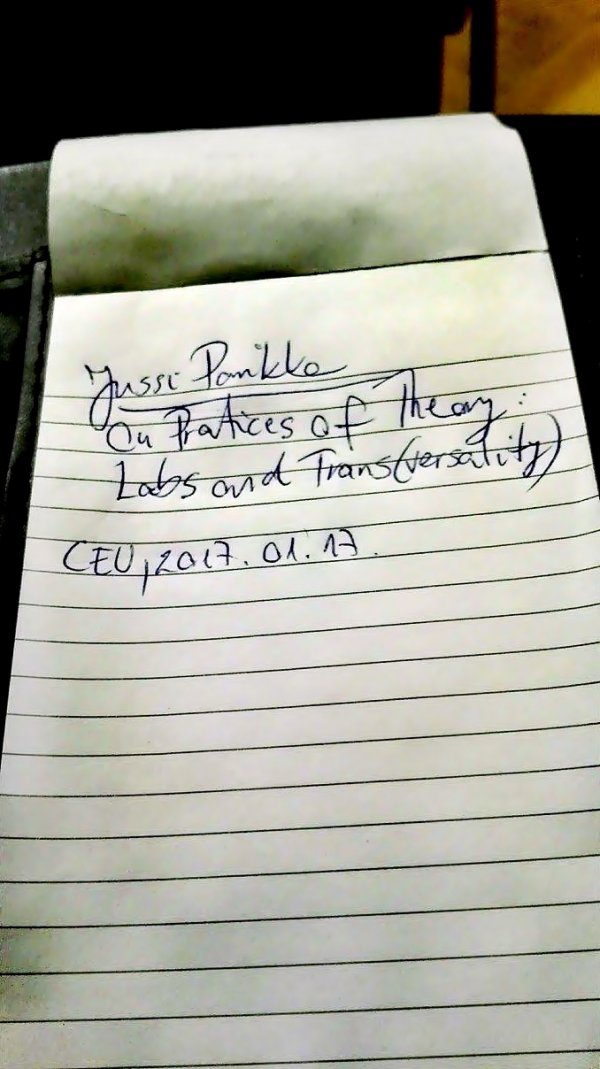 Jussi Parikka
On Pratices of Theory:
Labs and Trans(versality)
CEU, 2017. 01. 17.